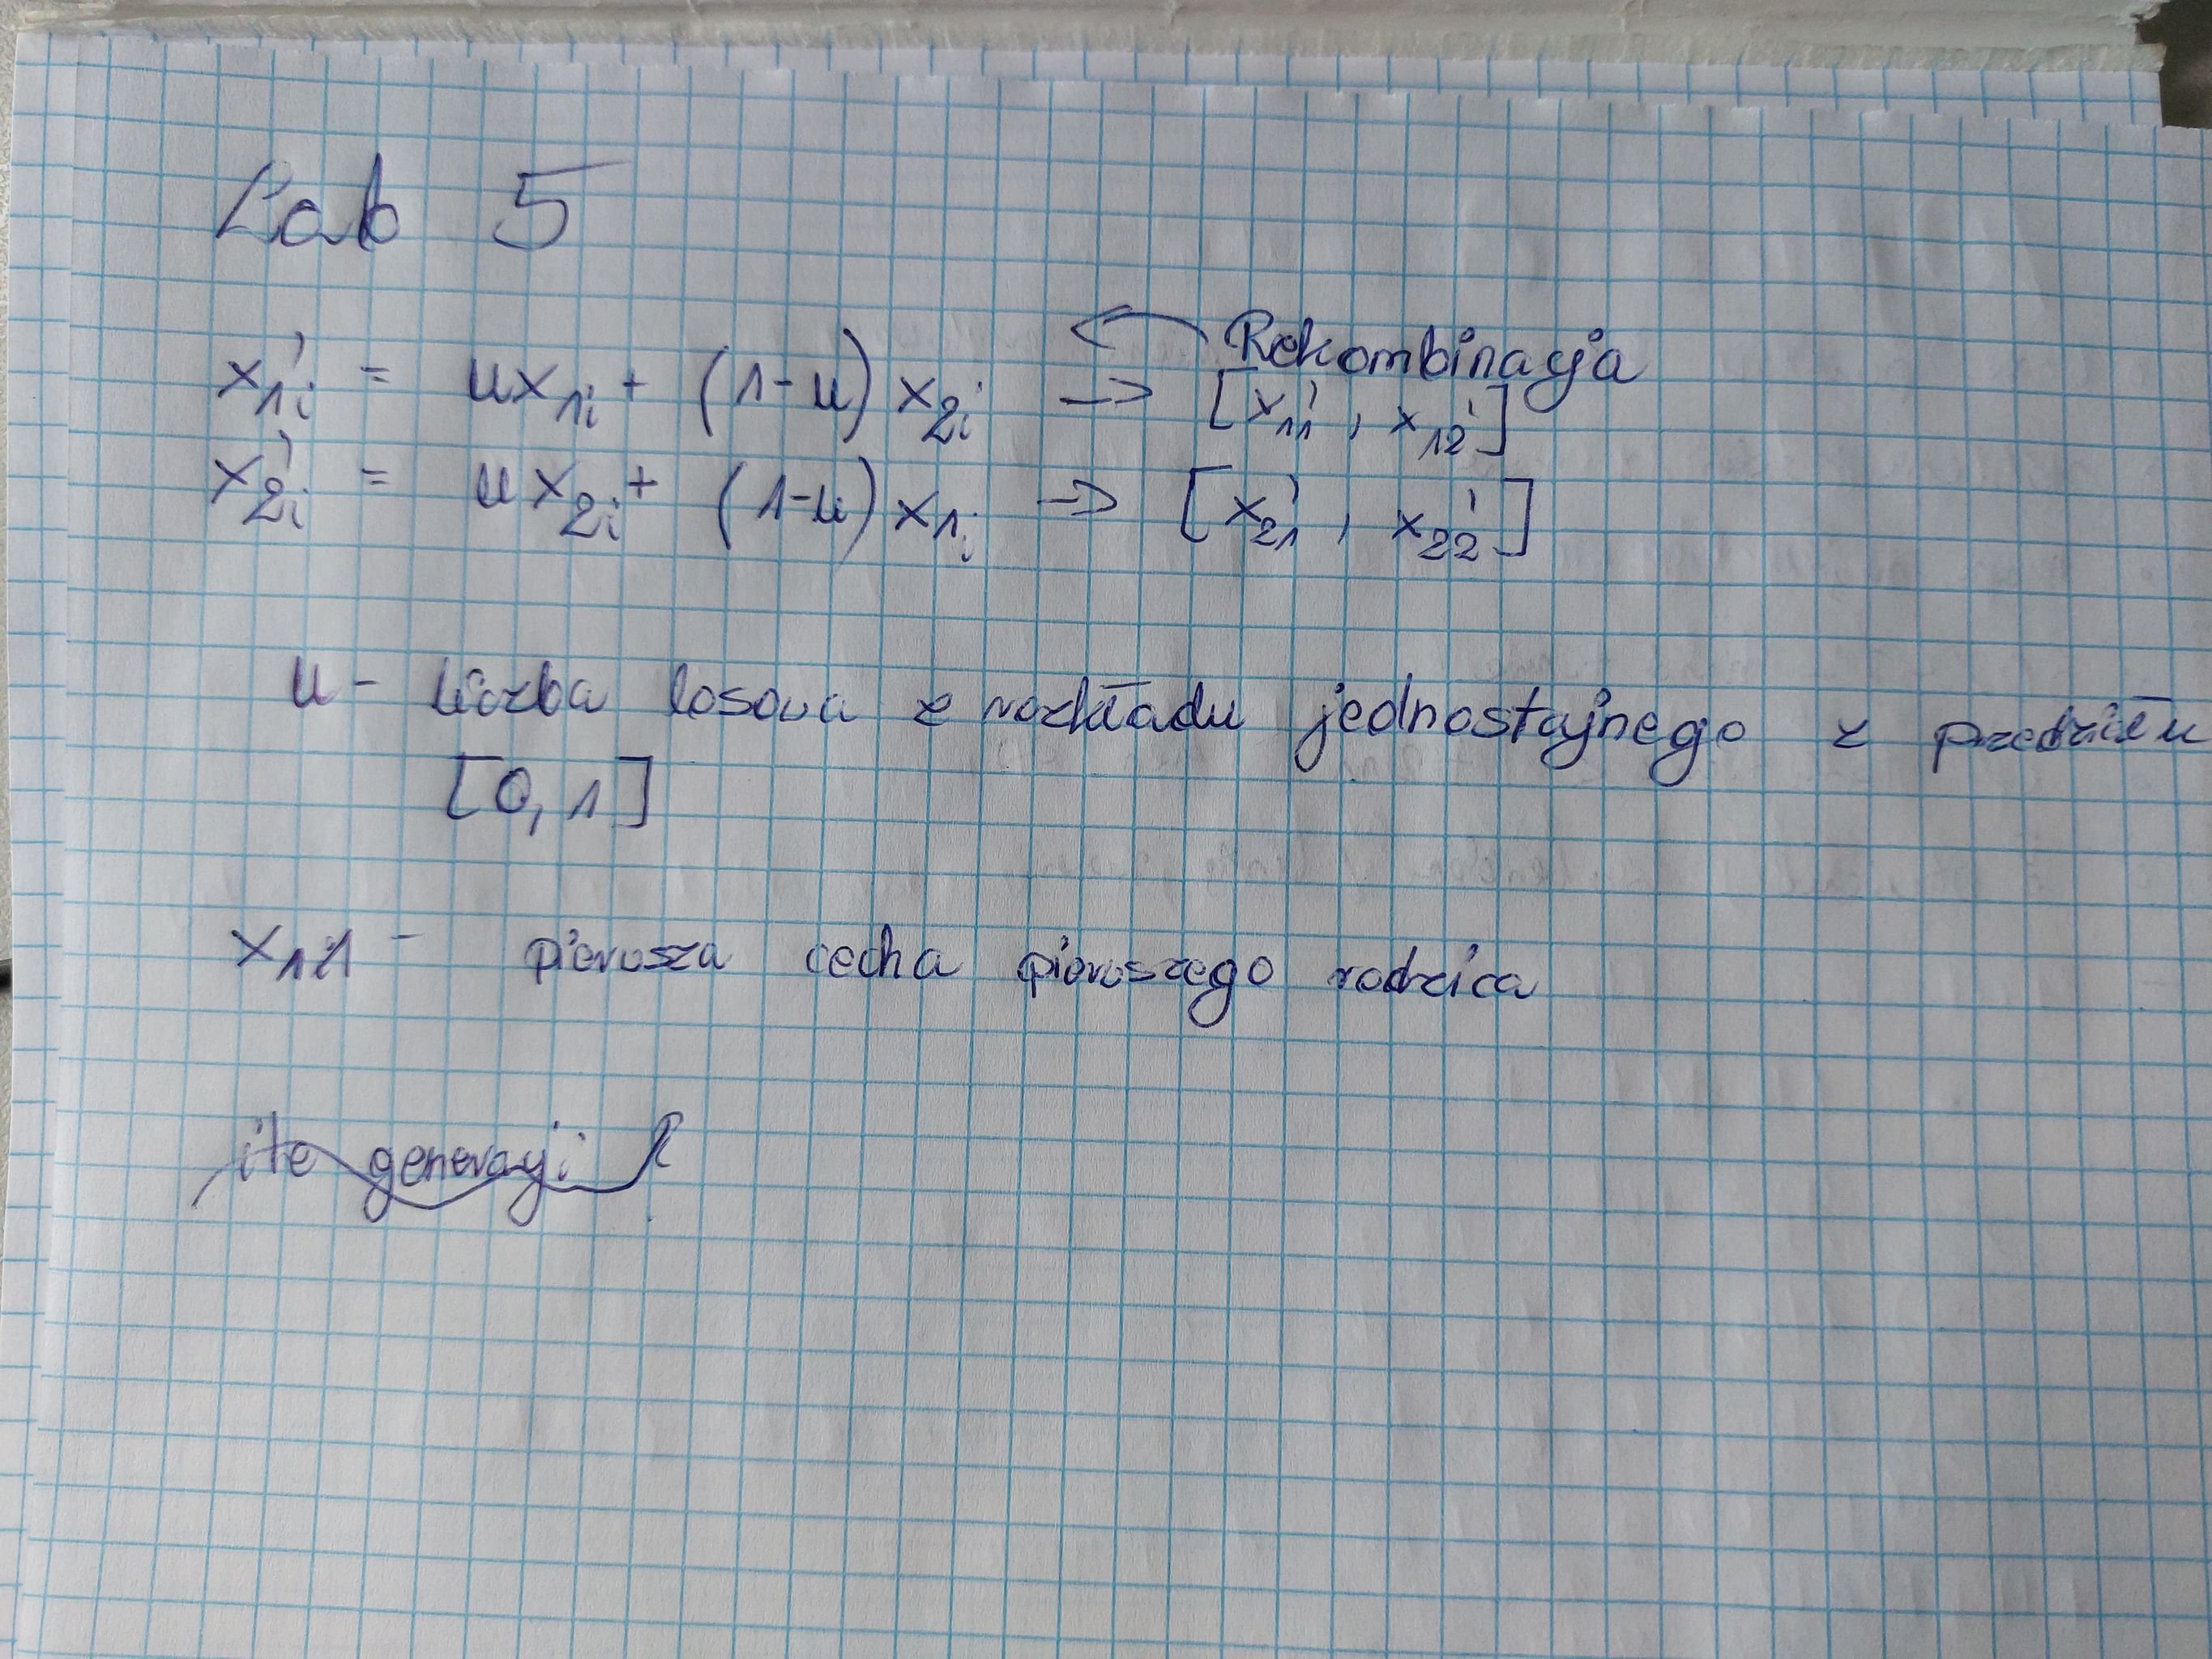 Lab 5
Rekombinacja
x₁ᵢ' = ux₁ᵢ + (1-u) x₂ᵢ → [x₁₁', x₁₂']
x₂ᵢ' = ux₂ᵢ + (1-u) x₁ᵢ → [x₂₁', x₂₂']
u - liczba losowa z rozkładu jednostajnego z
[0, 1]
x₁₁ - pierwsza cecha pierwszego rodzica
ile generacji ?